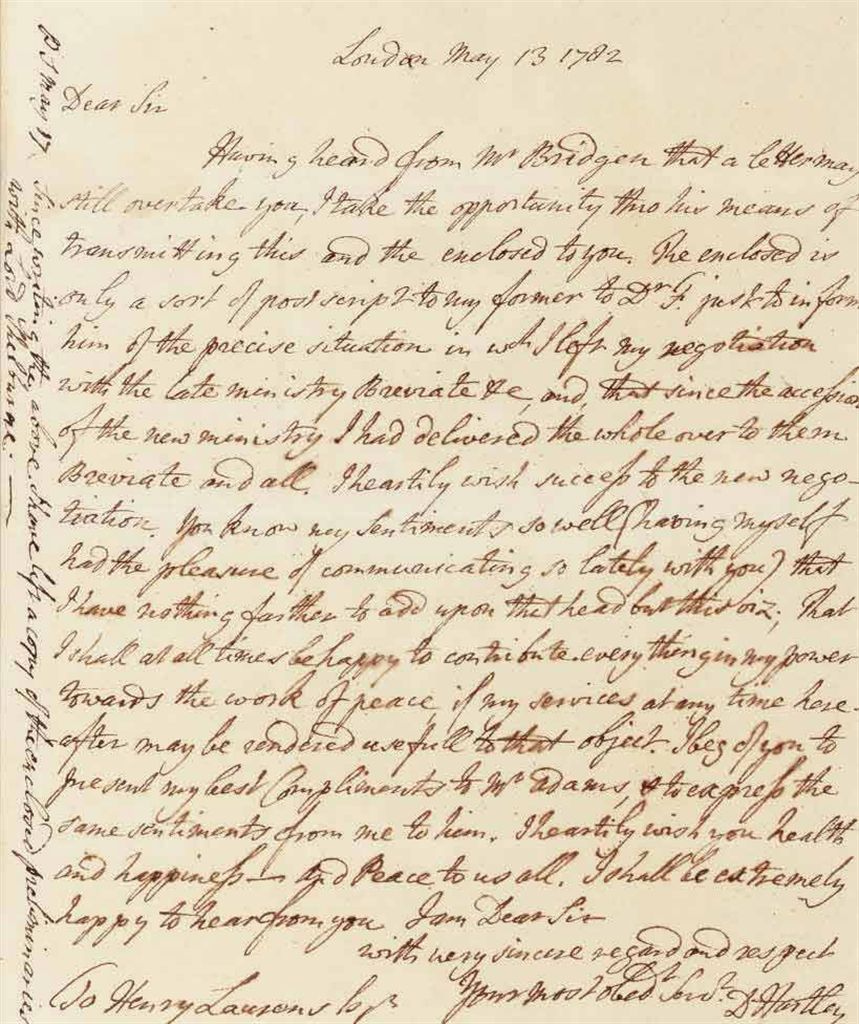 London May 13 1782
Dear Sir
Having heard from Mr Bridgen that a letter may
still overtake you, I take the opportunity thro his means of
transmitting this and the enclosed to you. The enclosed is
only a sort of postscript to my former to Dr F. just to inform
him of the precise situation in wch I left my negotiation
with the late ministry Breviate &c, and, that since the accession
of the new ministry I had delivered the whole over to them
Breviate and all. I heartily wish success to the new nego-
tiation. You know my sentiments so well (having myself
had the pleasure of communicating so lately with you) that
I have nothing farther to add upon that head but this viz; That
I shall at all times be happy to contribute every thing in my power
towards the work of peace, if my services at any time here-
after may be rendered usefull to that object. I beg of you to
present my best Compliments to Mr Adams, & to express the
same sentiments from me to him. I heartily wish you health
and happiness — and Peace to us all. I shall be extremely
happy to hear from you I am Dear Sir
with very sincere regard and respect
Your most obedt Servt. D Hartley
To Henry Laurens Esqr
P S May 17. Since writing the above I have left a copy of the enclosed preliminaries
with Lord Shelburne. —